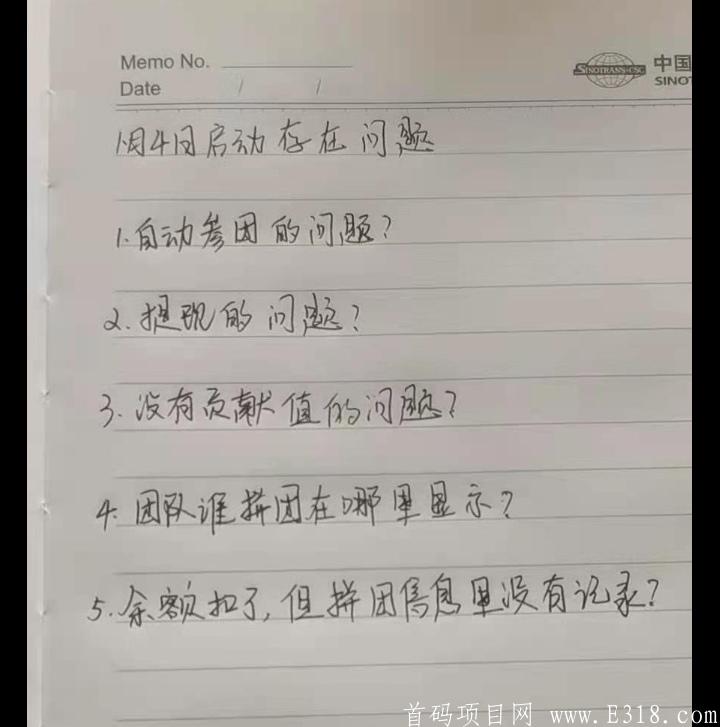 Memo No.
Date / /
SINOTRANS-CSC 中国
SINOT
1月4日启动存在问题
1.自动参团的问题?
2.提现的问题?
3.没有贡献值的问题?
4.团队谁拼团在哪里显示?
5.余额扣了,但拼团信息里没有记录?
首码项目网 www.E318.com